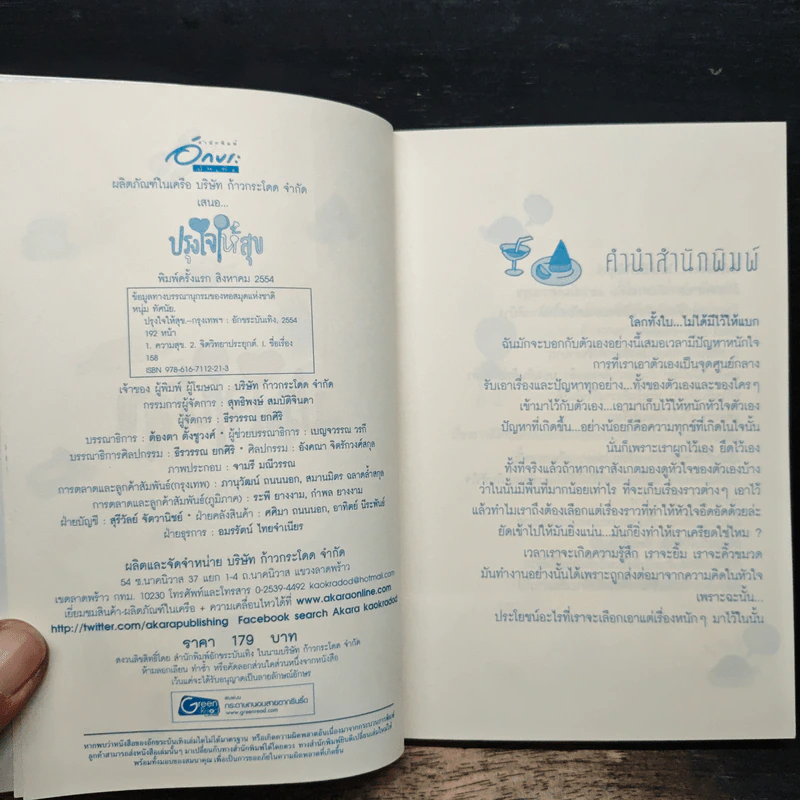 สำนักพิมพ์
อักขระ
บันเทิง
ผลิตภัณฑ์ในเครือ บริษัท ก้าวกระโดด จำกัด
เสนอ...
ปรุงใจให้สุข
พิมพ์ครั้งแรก สิงหาคม 2554
ข้อมูลทางบรรณานุกรมของหอสมุดแห่งชาติ
หนุ่ม ทัศนัย.
ปรุงใจให้สุข.--กรุงเทพฯ : อักขระบันเทิง, 2554
192 หน้า
1. ความสุข. 2. จิตวิทยาประยุกต์. I. ชื่อเรื่อง
158
ISBN 978-616-7112-21-3
เจ้าของ ผู้พิมพ์ ผู้โฆษณา : บริษัท ก้าวกระโดด จำกัด
กรรมการผู้จัดการ : สุทธิพงษ์ สมบัติจินดา
ผู้จัดการ : ธีรวรรณ ยกศิริ
บรรณาธิการ : ต้องตา ตั้งชูวงค์ • ผู้ช่วยบรรณาธิการ : เบญจวรรณ วรดี
บรรณาธิการศิลปกรรม : ธีรวรรณ ยกศิริ • ศิลปกรรม : อังคณา จิตรักวงศ์สกุล
ภาพประกอบ : จามรี มณีวรรณ
การตลาดและลูกค้าสัมพันธ์(กรุงเทพ) : ภานุวัฒน์ ถนนนอก, สมานมิตร ฉลาดล้ำสกุล
การตลาดและลูกค้าสัมพันธ์(ภูมิภาค) : ระพี ยางงาม, กำพล ยางงาม
ฝ่ายบัญชี : สุรีวัลย์ จัดวานิชย์ • ฝ่ายคลังสินค้า : ศศิมา ถนนนอก, อาทิตย์ นีระพันธ์
ฝ่ายธุรการ : อมรรัตน์ ไทยจำเนียร
ผลิตและจัดจำหน่าย บริษัท ก้าวกระโดด จำกัด
54 ซ.นาคนิวาส 37 แยก 1-4 ถ.นาคนิวาส แขวงลาดพร้าว
เขตลาดพร้าว กทม. 10230 โทรศัพท์และโทรสาร 0-2539-4492 kaokradod@hotmail.com
เยี่ยมชมสินค้า-ผลิตภัณฑ์ในเครือ + ความเคลื่อนไหวได้ที่ www.akaraonline.com
http://twitter.com/akarapublishing Facebook search Akara kaokradod
ราคา 179 บาท
สงวนลิขสิทธิ์โดย สำนักพิมพ์อักขระบันเทิง ในนามบริษัท ก้าวกระโดด จำกัด
ห้ามลอกเลียน ทำซ้ำ หรือคัดลอกส่วนใดส่วนหนึ่งจากหนังสือ
เว้นแต่จะได้รับอนุญาตเป็นลายลักษณ์อักษร
Green Read
พิมพ์บน
กระดาษถนอมสายตากรีนรี้ด
www.greenread.com
หากพบว่าหนังสือของอักขระบันเทิงเล่มใดไม่ได้มาตรฐาน หรือเกิดความผิดพลาดอันเนื่องมาจากกระบวนการพิมพ์
ลูกค้าสามารถส่งหนังสือเล่มนั้นๆ มาเปลี่ยนกับทางสำนักพิมพ์ได้โดยตรง ทางสำนักพิมพ์ยินดีเปลี่ยนเล่มใหม่ให้
พร้อมทั้งมอบของสมนาคุณ เพื่อเป็นการขออภัยในความผิดพลาดที่เกิดขึ้น
คำนำสำนักพิมพ์
โลกทั้งใบ...ไม่ได้มีไว้ให้แบก
ฉันมักจะบอกกับตัวเองอย่างนี้เสมอเวลามีปัญหาหนักใจ
การที่เราเอาตัวเองเป็นจุดศูนย์กลาง
รับเอาเรื่องและปัญหาทุกอย่าง...ทั้งของตัวเองและของใครๆ
เข้ามาไว้กับตัวเอง...เอามาเก็บไว้ให้หนักหัวใจตัวเอง
ปัญหาที่เกิดขึ้น...อย่างน้อยก็คือความทุกข์ที่เกิดในใจนั้น
นั่นก็เพราะเราผูกไว้เอง ยึดไว้เอง
ทั้งที่จริงแล้วถ้าหากเราสังเกตมองดูหัวใจของตัวเองบ้าง
ว่าในนั้นมีพื้นที่มากน้อยเท่าไร ที่จะเก็บเรื่องราวต่างๆ เอาไว้
แล้วทำไมเราถึงต้องเลือกแต่เรื่องราวที่ทำให้หัวใจอึดอัดด้วยล่ะ
ยัดเข้าไปให้มันยิ่งแน่น...มันก็ยิ่งทำให้เราเครียดใช่ไหม ?
เวลาเราจะเกิดความรู้สึก เราจะยิ้ม เราจะคิ้วขมวด
มันทำงานอย่างนั้นได้เพราะถูกส่งต่อมาจากความคิดในหัวใจ
เพราะฉะนั้น...
ประโยชน์อะไรที่เราจะเลือกเอาแต่เรื่องหนักๆ มาไว้ในนั้น